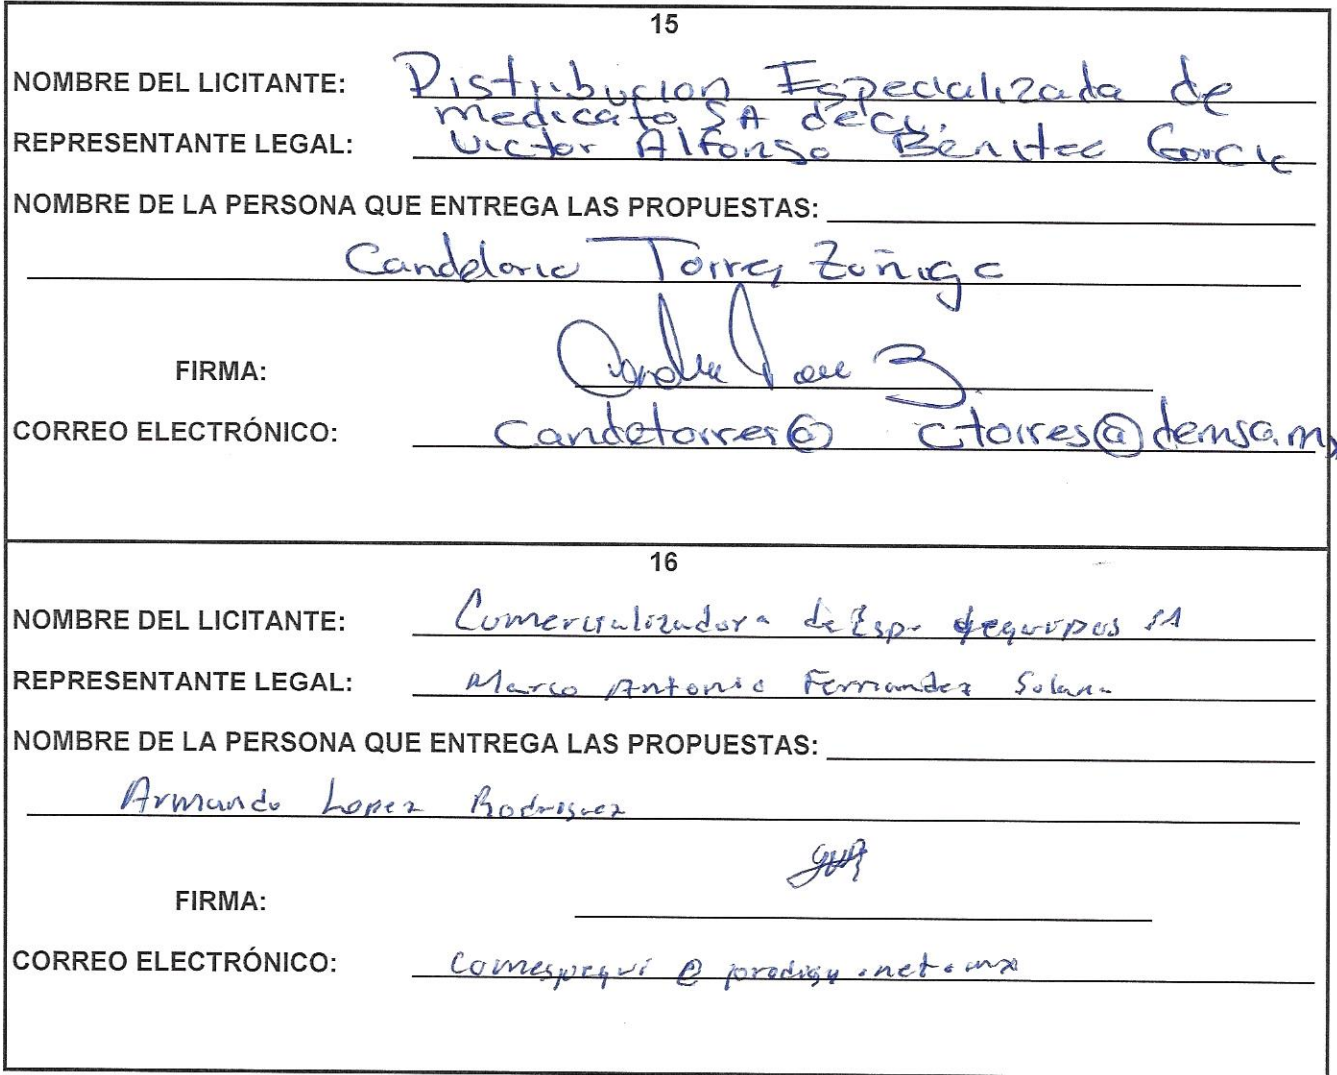 15
NOMBRE DEL LICITANTE: Distribucion Especializada de
medicato SA de cv.
REPRESENTANTE LEGAL: Victor Alfonso Benitez Garcia
NOMBRE DE LA PERSONA QUE ENTREGA LAS PROPUESTAS:
Candelaria Torres Zuñiga
FIRMA:
CORREO ELECTRÓNICO: candetorres@ ctorres@demsa.mx
16
NOMBRE DEL LICITANTE: Comercializadora de Esp. equipos SA
REPRESENTANTE LEGAL: Marco Antonio Fernandez Solana
NOMBRE DE LA PERSONA QUE ENTREGA LAS PROPUESTAS:
Armando Lopez Rodriguez
FIRMA:
CORREO ELECTRÓNICO: comespequi@prodigy.net.mx